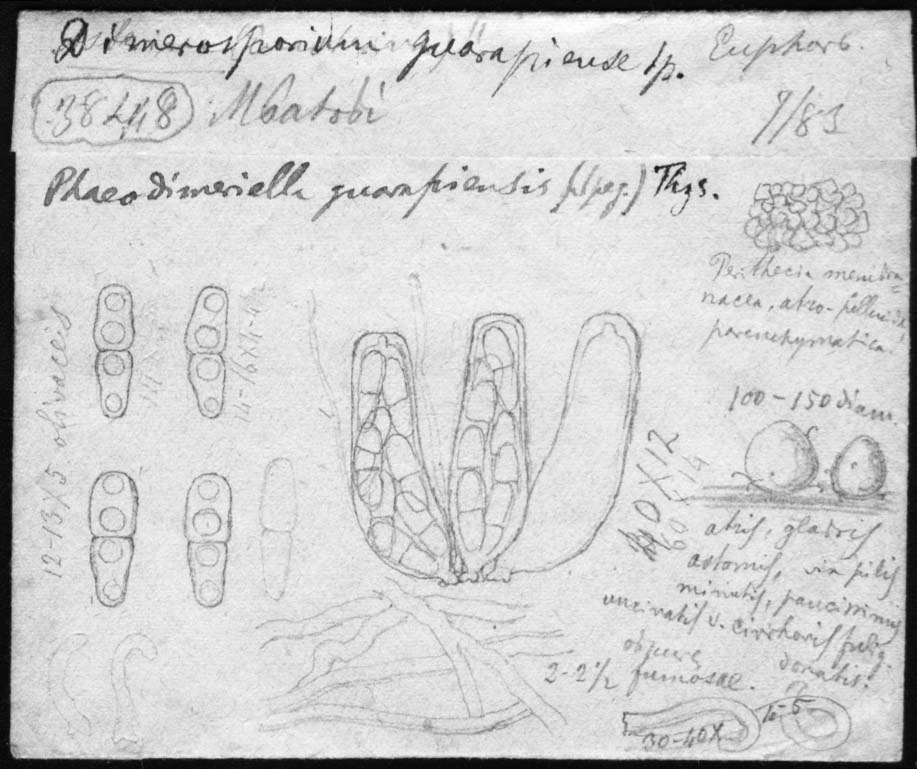 Dimerosporium guarapiense sp. Euphorb.
Mbatobi
7/83
Phaeodimeriella guarapiensis (Speg.) Thys.
Perithecia membra=
nacea, atro-pellucida
parenchymatica
12-13X5 olivaceis
14-16X4-4½
100-150 diam.
40X12
60 14
atris, glabris
astomis, vix pilis
minutis, paucissimis
uncinatis v. cirrhosis fulig.
donatis.
obscure
2-2½ fumosae.
30-40X 4-5